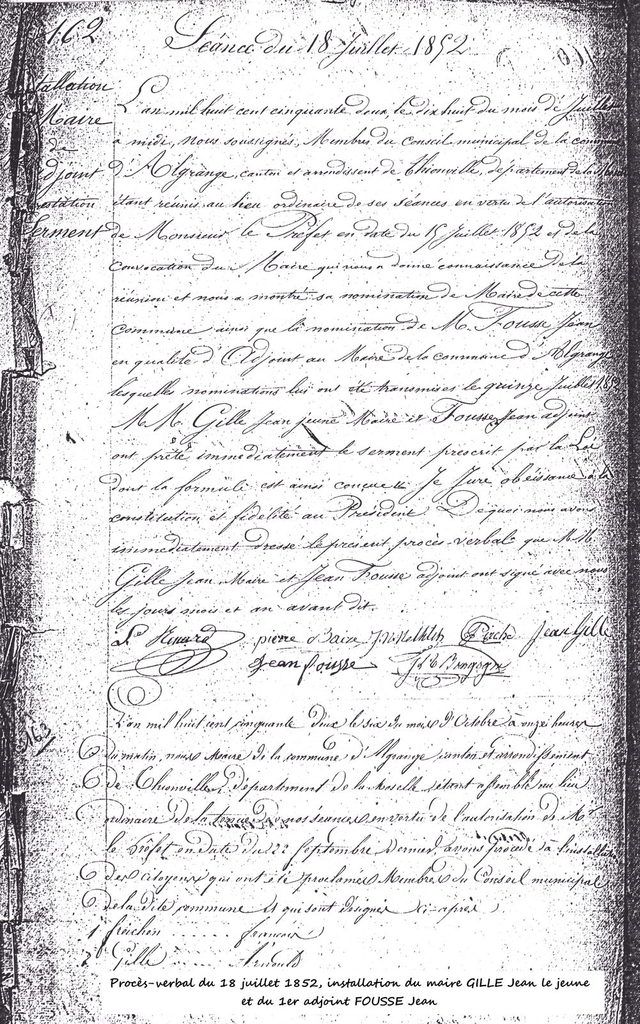 162
Séance du 18 Juillet 1852
Installation
Maire
de
adjoint
prestation
Serment
L'an mil huit cent cinquante deux, le dix huit du mois de Juillet
a midi, nous soussignés, Membres du Conseil municipal de la commune
d'Algrange, canton et arrondissent de Thionville, département de la
étant réunis au lieu ordinaire de ses séances en vertu de l'autorisation
de Monsieur le Préfet en date du 15 Juillet 1852 et de la
convocation du Maire qui nous a donné connaissance de la
réunion et nous a montré sa nomination de Maire de cette
commune ainsi que la nomination de M. Fousse Jean
en qualité d'Adjoint au Maire de la commune d'Algrange
lesquelles nominations lui ont été transmises le quinze Juillet 1852
M.M. Gille Jean jeune Maire et Fousse Jean adjoint
ont prêté immédiatement le serment prescrit par la Loi
dont la formule est ainsi conçue Je Jure obéissance à la
constitution et fidélité au Président. De quoi nous avons
immédiatement dressé le présent procès-verbal que M.M
Gille Jean, Maire et Jean Fousse adjoint ont signé avec nous
les jours mois et an avant dit.
pierre Jean Gille
Jean fousse
163
L'an mil huit cent cinquante deux le six du mois d'Octobre à onze heures
du matin, nous Maire de la commune d'Algrange canton et arrondissement
de Thionville, département de la Moselle, étant assemblé au lieu
ordinaire de la tenue de nos séances en vertu de l'autorisation de Mr
le Préfet en date du 22 Septembre dernier avons procédé à l'installation
des citoyens qui ont été proclamés Membres du Conseil municipal
de la dite commune et qui sont désignés ci-après.
1 froichon francois
2 Gille
Procès-verbal du 18 juillet 1852, installation du maire GILLE Jean le jeune
et du 1er adjoint FOUSSE Jean